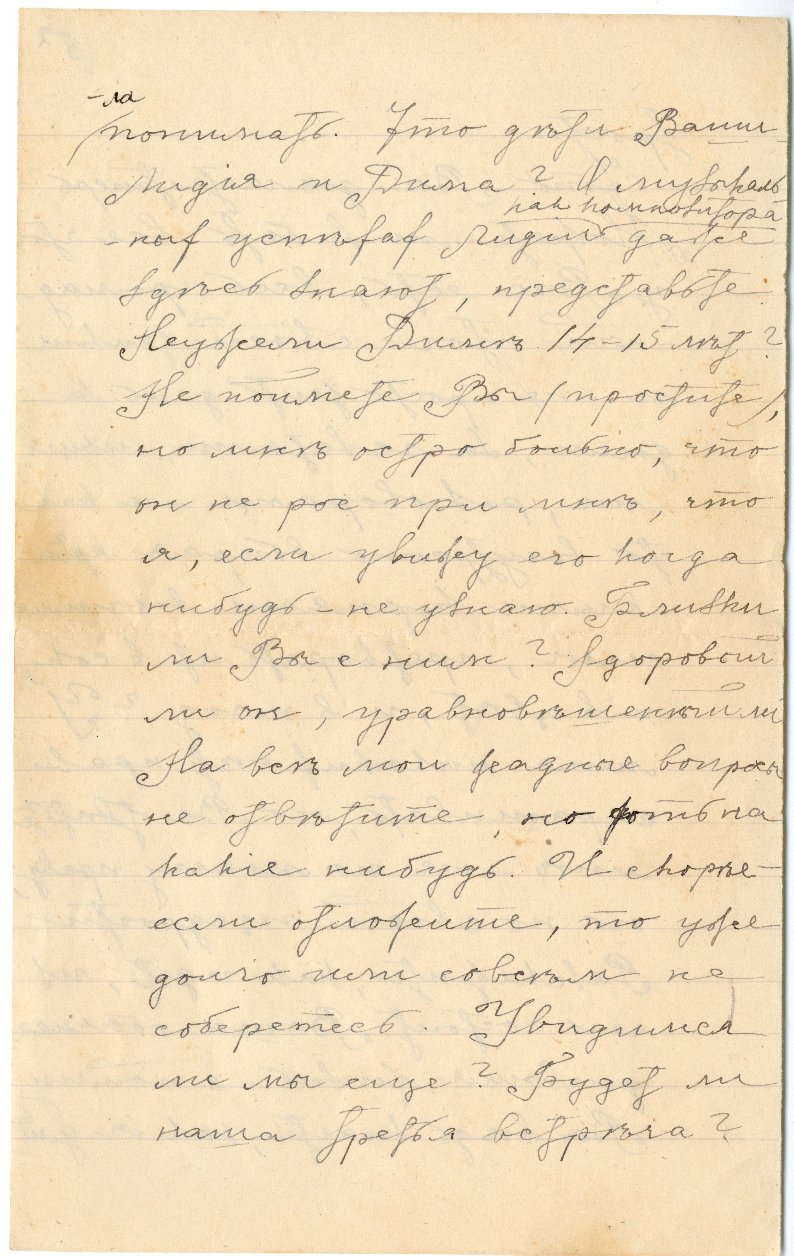 -ла
понимать. Что дѣти Ваши –
Лидія и Дима? О музыкаль
как композитора
-ных успѣхах Лидіи даже
здѣсь знают, представьте.
Неужели Димѣ 14–15 лѣт?
Не поймете Вы (простите),
но мнѣ остро больно, что
он не рос при мнѣ, что
я, если увижу его когда
нибудь – не узнаю. Близки
ли Вы с ним? Здоровый
ли он, уравновѣшенный ли
На всѣ мои жадные вопросы
не отвѣтите, но хоть на
какіе нибудь. И скорѣе –
если отложите, то уже
долго или совсѣм не
соберетесь. Увидимся
ли мы еще? Будет ли
наша третья встрѣча?